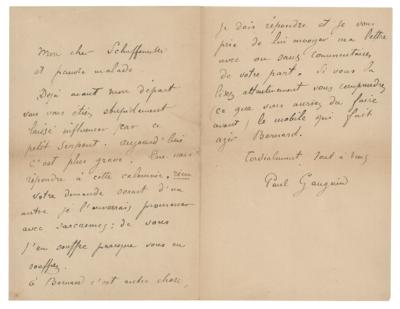 Mon cher Schuffenecker
et pauvre malade
Déjà avant mon départ
vous vous étiez stupidement
laissé influencer par ce
petit serpent. Aujourd'hui
c'est plus grave. Que vous
répondre à cette calomnie, rien
Votre demande venant d'un
autre je l'ouvrais
avec sarcasmes; de vous
j'en souffre parce que vous en
souffrez.
à Bernard c'est autre chose,
je dois répondre et je vous
prie de lui envoyer ma lettre
avec ou sans commentaires
de votre part. Si vous la
lisez attentivement vous comprendrez
ce que vous auriez dû faire
avant; le mobile qui fait
agir Bernard.
Cordialement tout à vous
Paul Gauguin